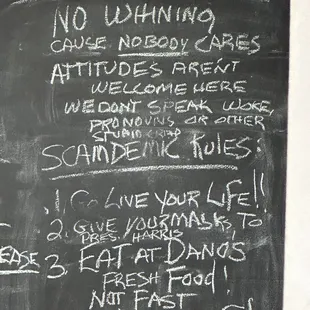 NO WHINING
CAUSE NOBODY CARES
ATTITUDES AREN'T
WELCOME HERE
WE DONT SPEAK WOKE,
PRONOUNS OR OTHER
STUPID CRAP
SCAMDEMIC RULES:
.1 Go LIVE YOUR LIFE!!
2. GIVE YOUR MASKS TO
PRES. HARRIS
EASE 3. EAT AT DANOS
FRESH FOOD!
NOT FAST